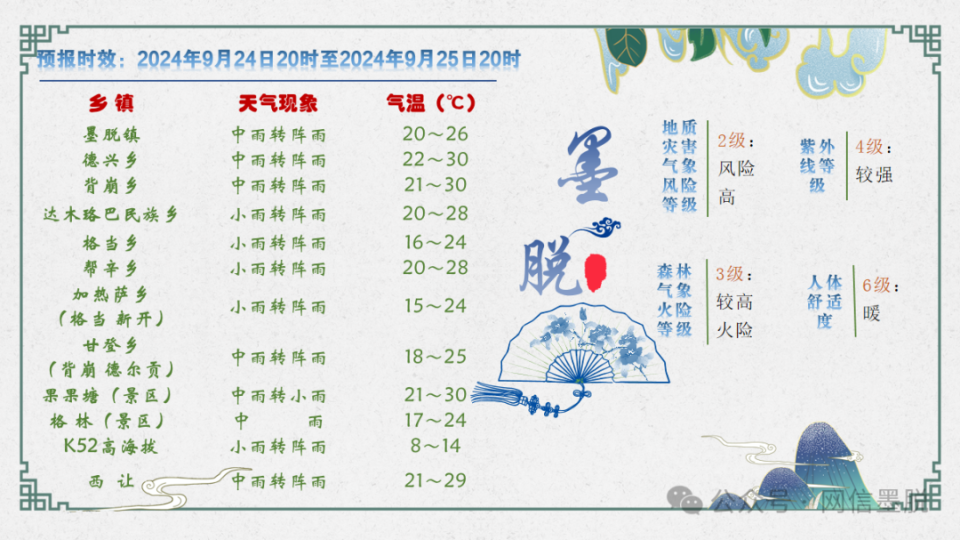 预报时效：2024年9月24日20时至2024年9月25日20时
乡镇 天气现象 气温（℃）
墨脱镇 中雨转阵雨 20～26
德兴乡 中雨转阵雨 22～30
背崩乡 中雨转阵雨 21～30
达木珞巴民族乡 小雨转阵雨 20～28
格当乡 小雨转阵雨 16～24
帮辛乡 小雨转阵雨 20～28
加热萨乡
（格当 新开） 小雨转阵雨 15～24
甘登乡
（背崩 德尔贡） 中雨转阵雨 18～25
果果塘（景区） 中雨转小雨 21～30
格林（景区） 中 雨 17～24
K52高海拔 小雨转阵雨 8～14
西 让 中雨转阵雨 21～29
墨
脱
地质
灾害
气象
风险
等级
2级：
风险
高
紫外
线等
级
4级：
较强
森林
气象
火险
等级
3级：
较高
火险
人体
舒适
度
6级：
暖
公众号 · 网信墨脱